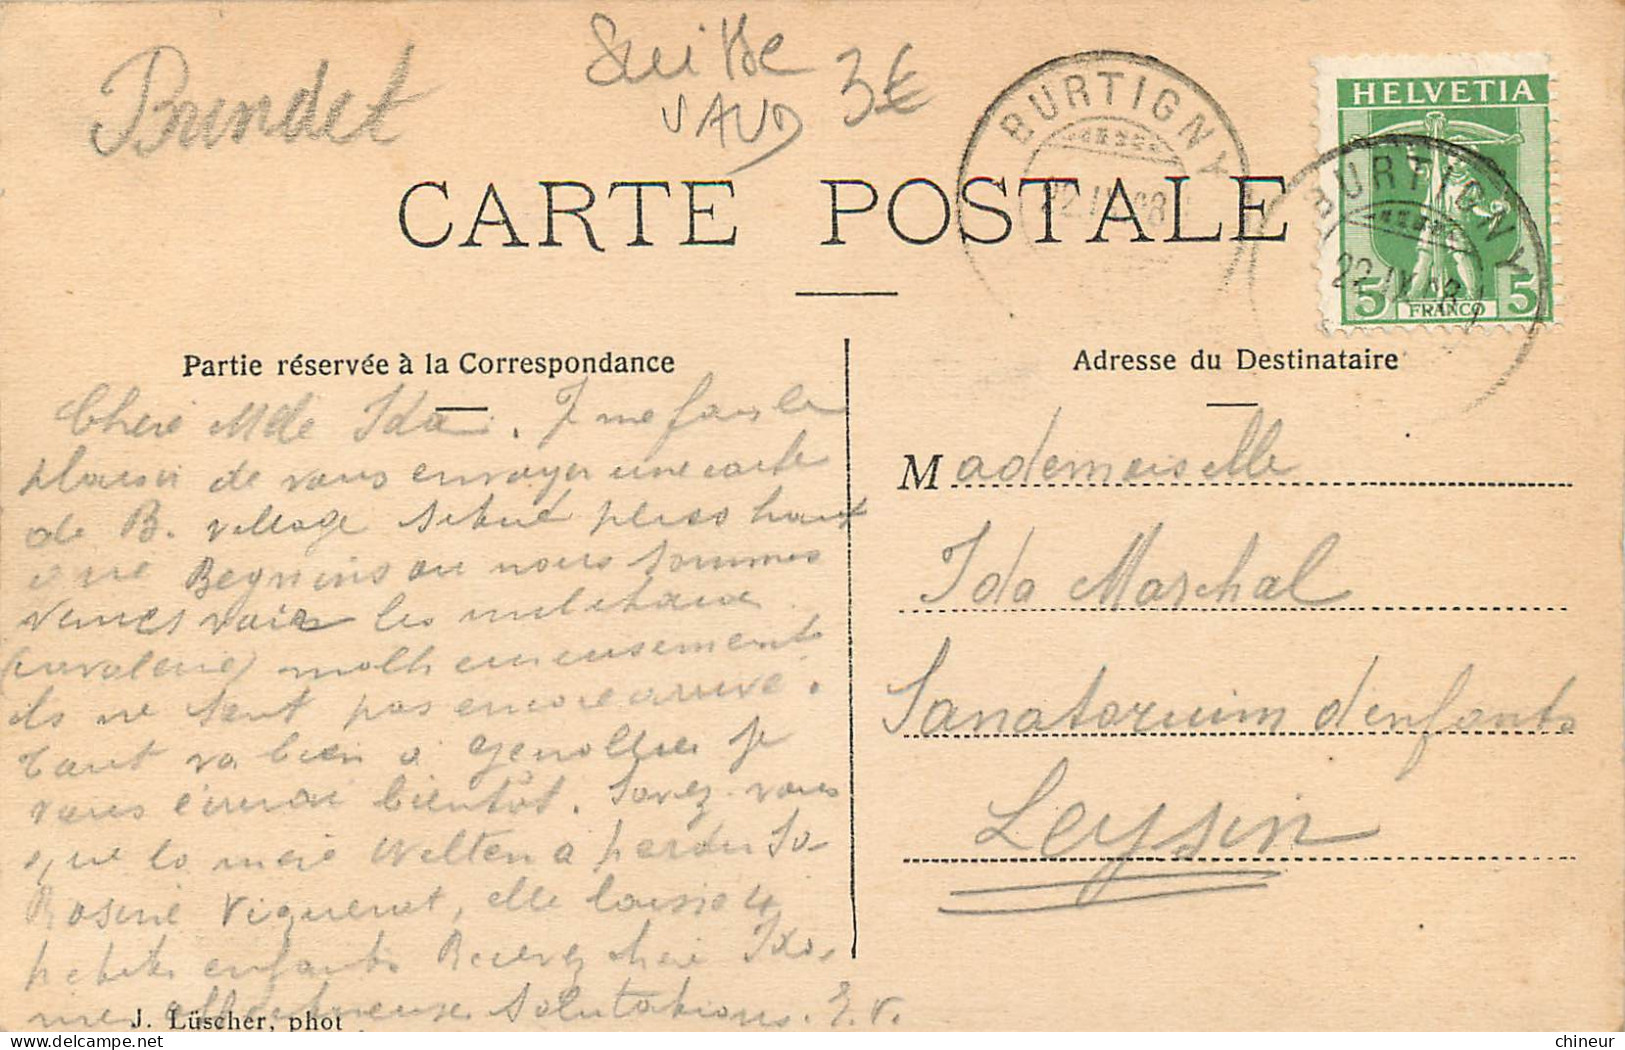 Brindet
Suisse
VAUD 3€
BURTIGNY
22.IX.08
HELVETIA
BURTIGNY
22.IX.08
5 FRANCO 5
CARTE POSTALE
Partie réservée à la Correspondance
Adresse du Destinataire
Chere Mdle Ida. J me fais le
plaisir de vous envoyer une carte
de B. village situé pluss haut
que Begnins ou nous sommes
venues voir les
(cavalerie) malheureusement
ils ne sont pas encore arrivé.
Tout va bien a Genollier je
vous bientôt. Savez-vous
que la mere Welten a perdu sa
Rosine Viquerat, elle laisse 4
petits enfants Recevez chere Ida,
mes affectueuse salutations. E.V.
J. Lüscher, phot
Mademoiselle
Ida Marchal
Sanatorium d'enfants
Leysin
chineur